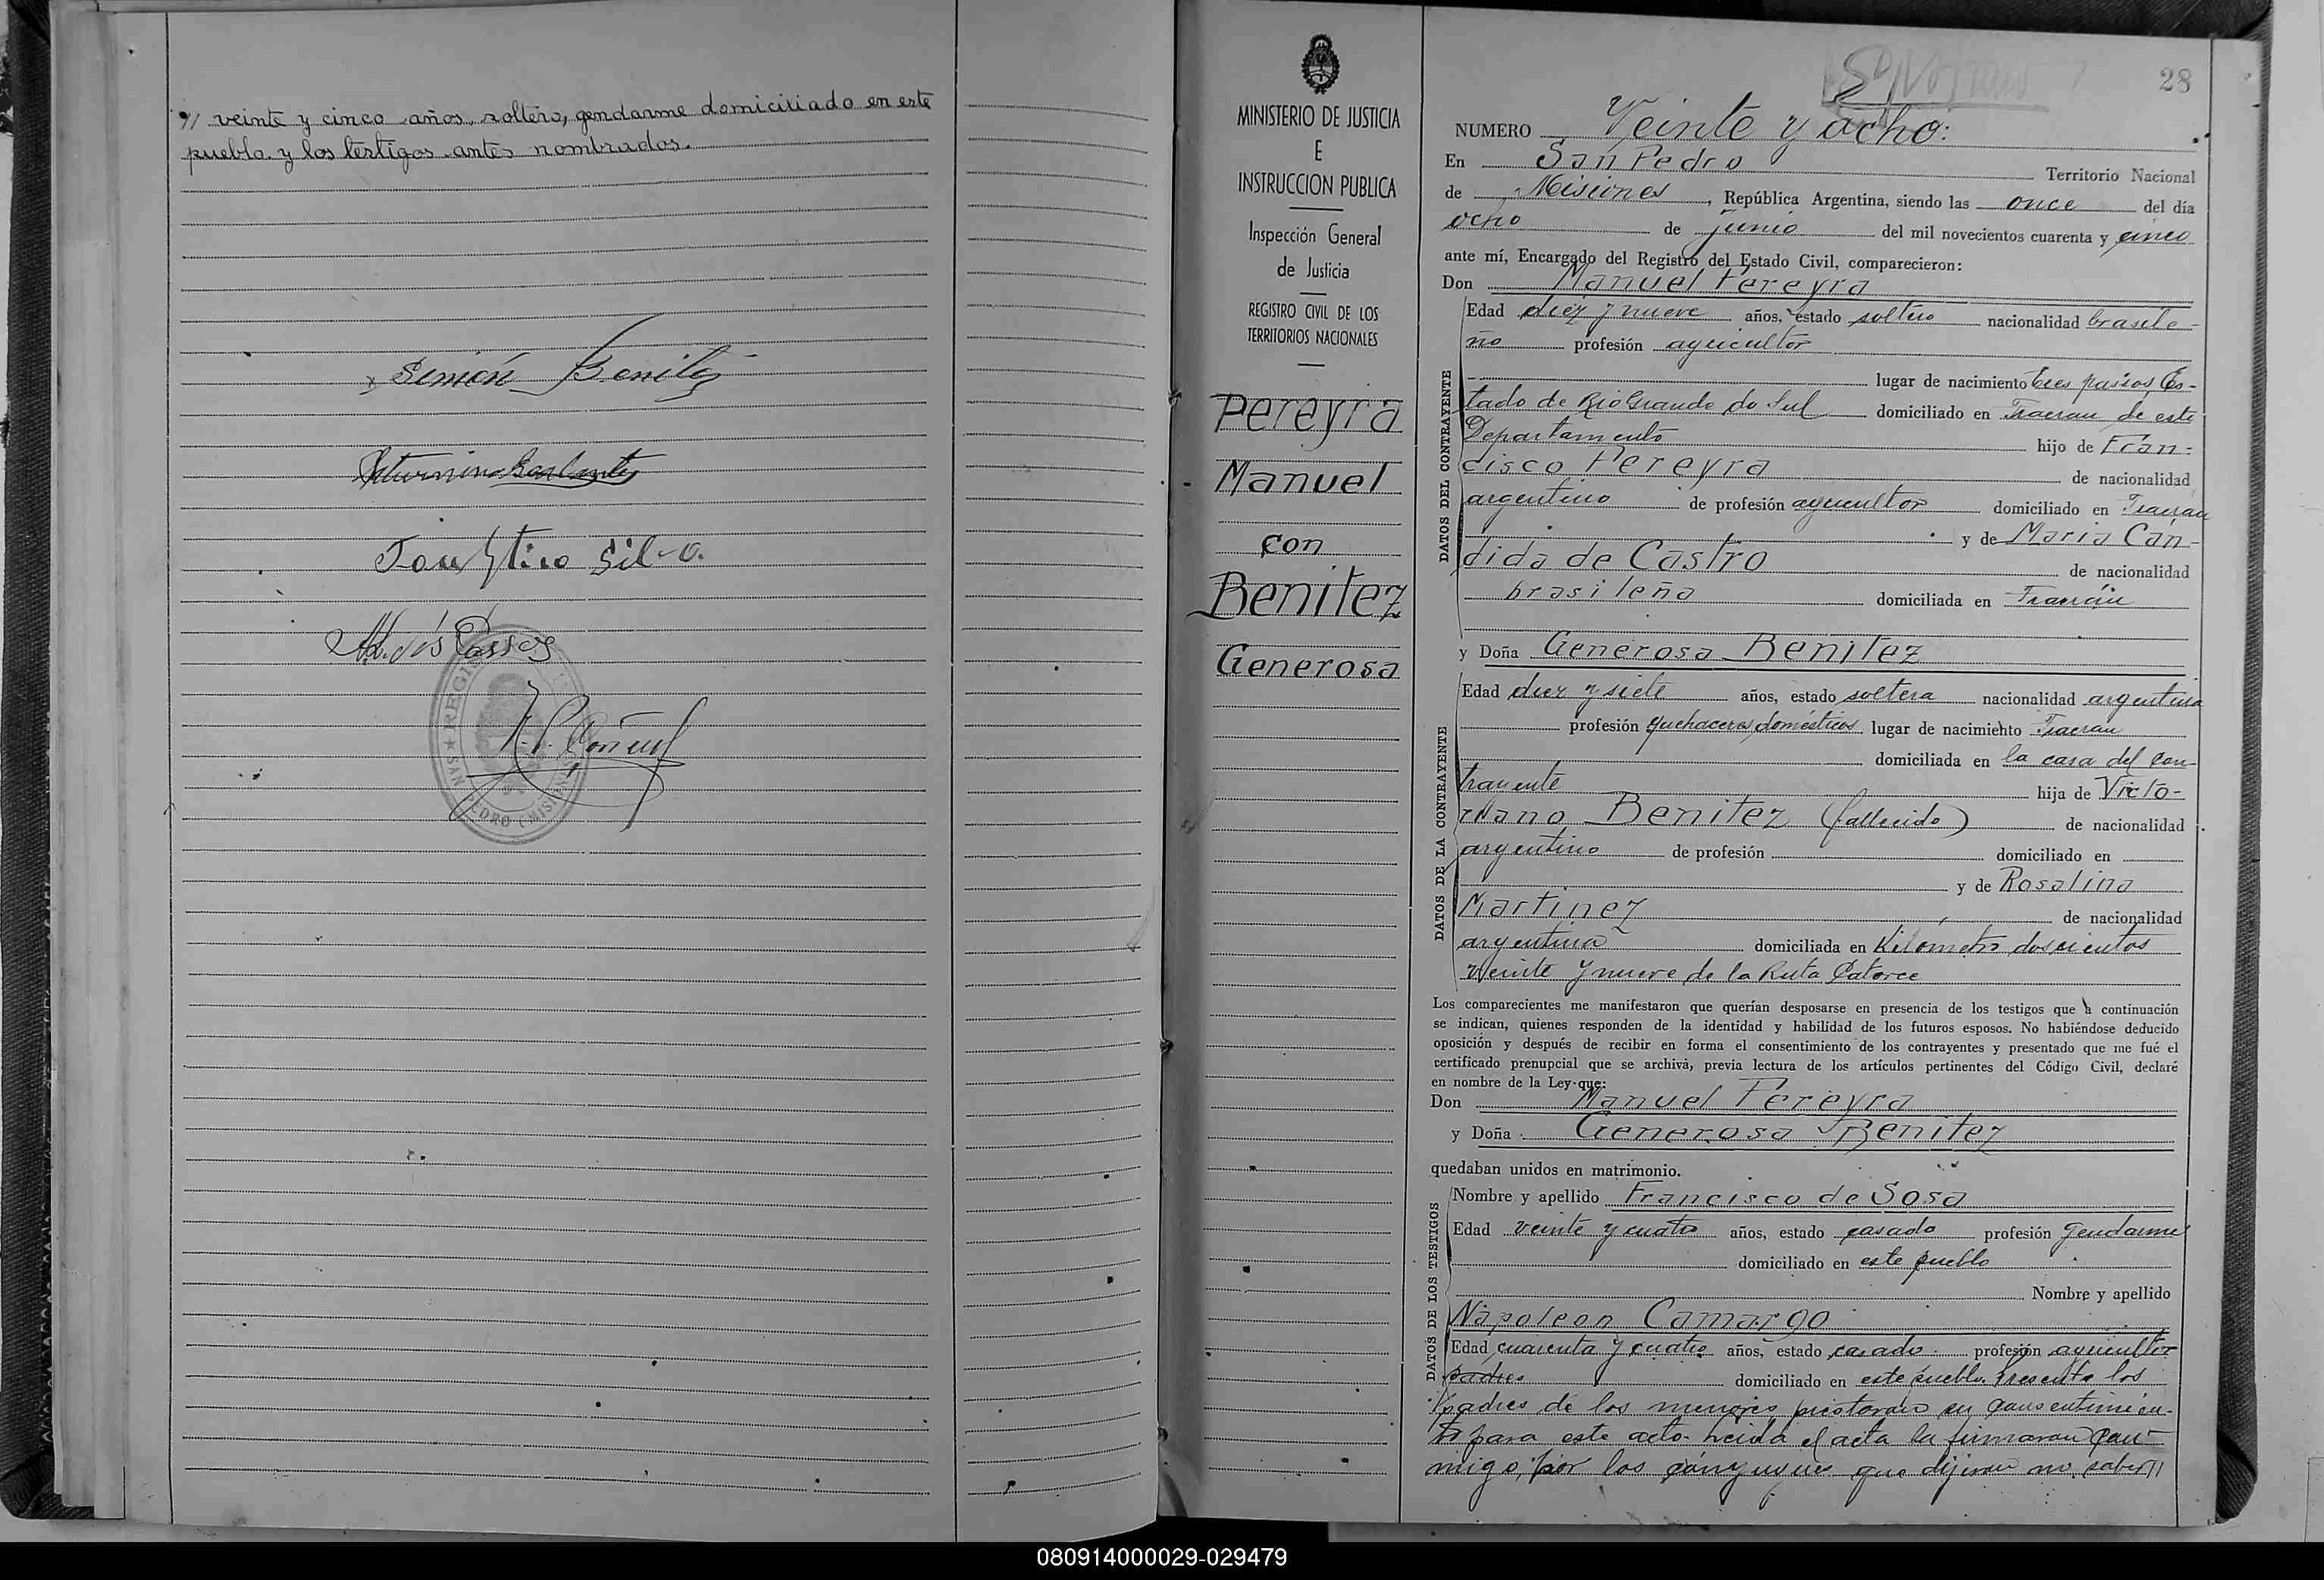 // veinte y cinco años, soltero, gendarme domiciliado en este
pueblo y los testigos antes nombrados.
Simón Benitez
Faustino Silva.
REGIS
SAN PEDRO (MISIONES)
MINISTERIO DE JUSTICIA
E
INSTRUCCION PUBLICA
Inspección General
de Justicia
REGISTRO CIVIL DE LOS
TERRITORIOS NACIONALES
Pereyra
Manuel
con
Benitez
Generosa
28
NUMERO Veinte y ocho:
En San Pedro Territorio Nacional
de Misiones, República Argentina, siendo las once del día
ocho de junio del mil novecientos cuarenta y cinco
ante mí, Encargado del Registro del Estado Civil, comparecieron:
Don Manuel Pereyra
DATOS DEL CONTRAYENTE
Edad diez y nueve años, estado soltero nacionalidad brasile-
ño profesión agricultor
lugar de nacimiento tres passos, Es-
tado de Rio Grande do Sul domiciliado en Tracrau de este
Departamento hijo de Fran-
cisco Pereyra de nacionalidad
argentino de profesión agricultor domiciliado en Tracrau
y de Maria Can-
dida de Castro de nacionalidad
brasileña domiciliada en Tracrau
y Doña Generosa Benitez
DATOS DE LA CONTRAYENTE
Edad diez y siete años, estado soltera nacionalidad argentina
profesión quehaceres domésticos lugar de nacimiento Tracrau
domiciliada en la casa del con-
trayente hija de Victo-
riano Benitez (fallecido) de nacionalidad
argentino de profesión domiciliado en
y de Rosalina
Martinez de nacionalidad
argentina domiciliada en Kilómetro doscientos
veinte y nueve de la Ruta Catorce
Los comparecientes me manifestaron que querían desposarse en presencia de los testigos que a continuación
se indican, quienes responden de la identidad y habilidad de los futuros esposos. No habiéndose deducido
oposición y después de recibir en forma el consentimiento de los contrayentes y presentado que me fué el
certificado prenupcial que se archiva, previa lectura de los artículos pertinentes del Código Civil, declaré
en nombre de la Ley que:
Don Manuel Pereyra
y Doña Generosa Benitez
quedaban unidos en matrimonio.
DATOS DE LOS TESTIGOS
Nombre y apellido Francisco de Sosa
Edad veinte y cuatro años, estado casado profesión Gendarme
domiciliado en este pueblo
Nombre y apellido
Napoleon Camargo
Edad cuarenta y cuatro años, estado casado profesión agricultor
padres domiciliado en este pueblo. Presente los
padres de los menores prestaron su consentimien-
to para este acto. Leida el acta la firmaron con-
migo, por los cónyuges que dijeron no saber//
080914000029-029479